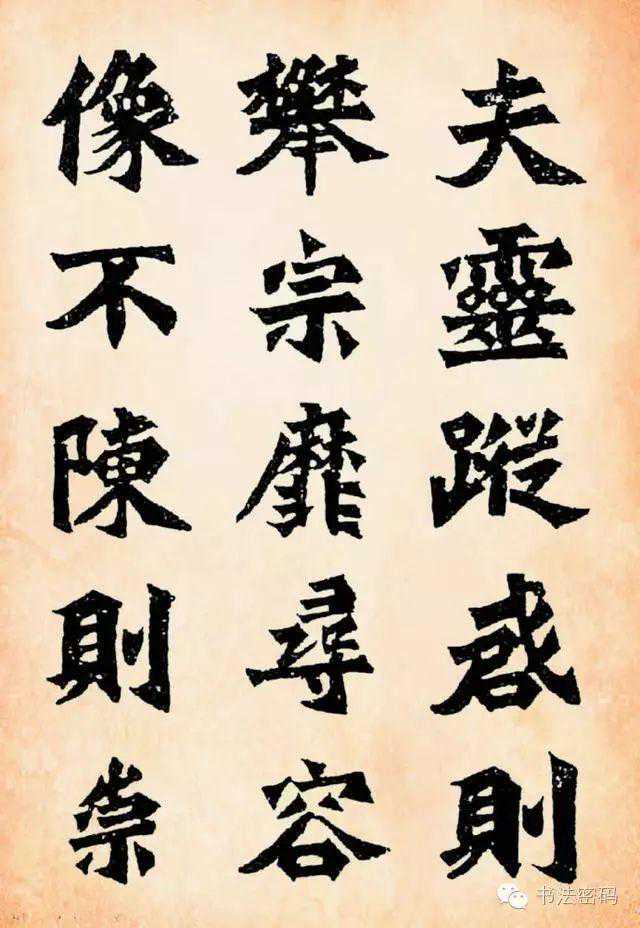 夫靈蹤啟則
攀宗靡尋容
像不陳則崇
书法密码